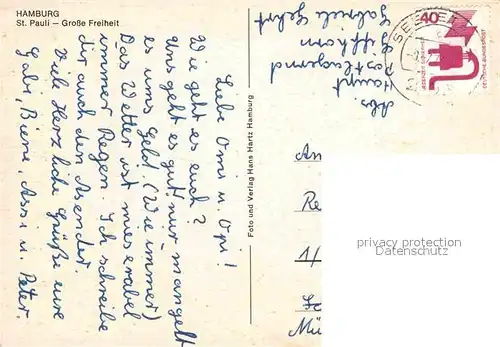 HAMBURG
St. Pauli – Große Freiheit
Liebe Omi u. Opi!
Wie geht es euch?
Uns geht es gut, nur mangelt
es ums Geld. (Wie immer)
Das Wetter ist miserabel
immer Regen. Ich schreibe
dir auch den Absender.
Viele Herzliche Grüße eure
Gabi, Biene, Assi u. Peter.
Foto und Verlag Hans Hartz Hamburg
Abs.
Hauptpostlagernd
Gifhorn
Gabriele Gehrt
40
DEUTSCHE BUNDESPOST
An
Re
1/
Mü
privacy protection
watermark